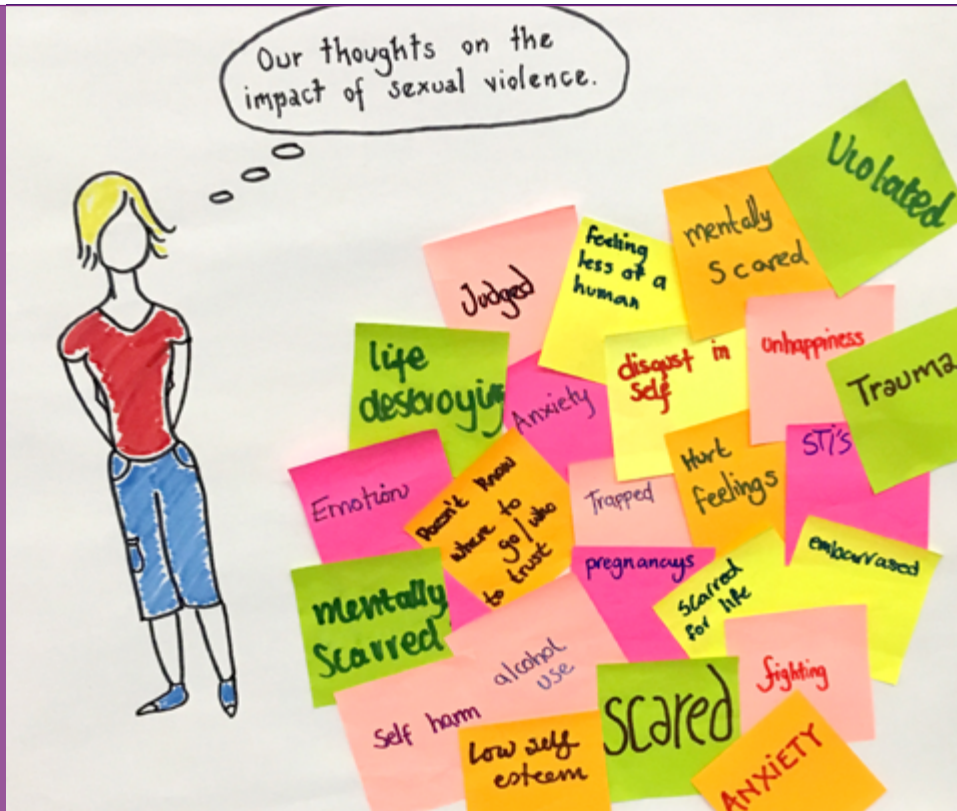 Our thoughts on the
impact of sexual violence.
Violated
mentally
scared
feeling
less of a
human
Judged
unhappiness
disgust in
self
life
destroying
Trauma
Anxiety
STi's
Hurt
feelings
Emotion
Doesn't know
where to
go/who
to trust
Trapped
pregnancys
embarrased
scarred
for life
mentally
Scarred
alcohol
use
fighting
Self harm
SCARED
Low self
esteem
ANXiETY